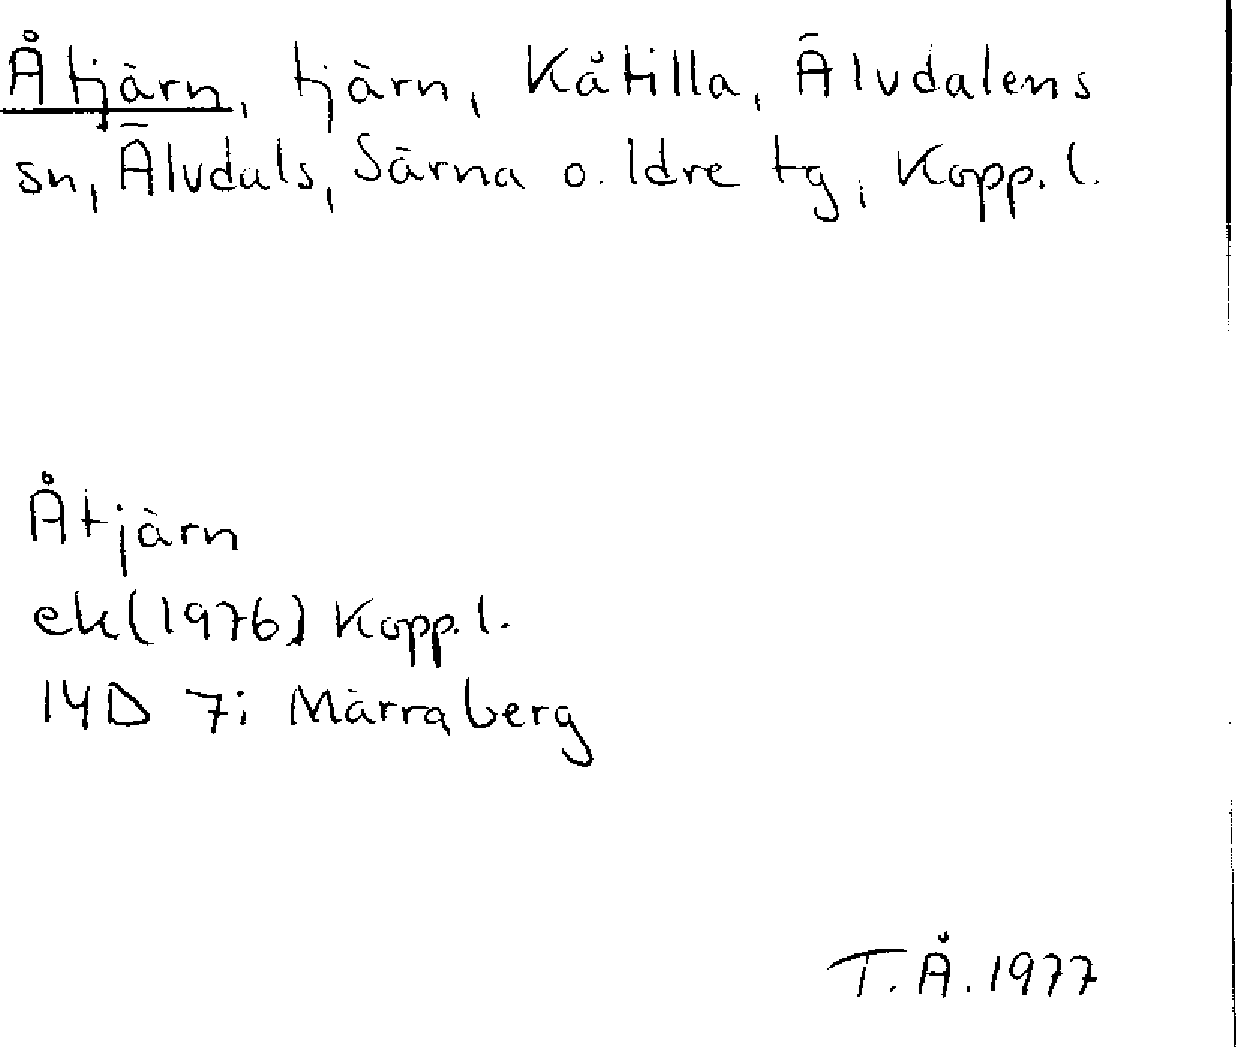 Åtjärn, tjärn, Kåtilla, Älvdalens
sn, Älvdals, Särna o. Idre tg, Kopp. l.
Åtjärn
ek (1976) Kopp. l.
14D 7i Märraberg
T.Å. 1977